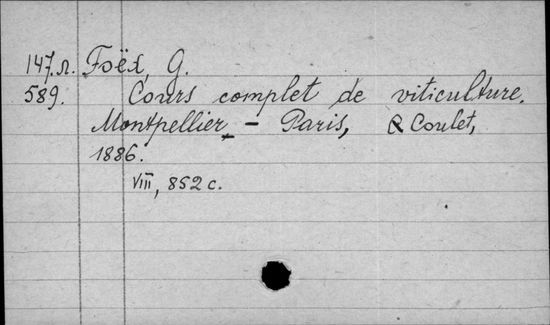 147.л. Foëx, G.
589. Cours complet de viticulture.
Montpellier, – Paris, Coulet,
1886.
VIII, 852 c.